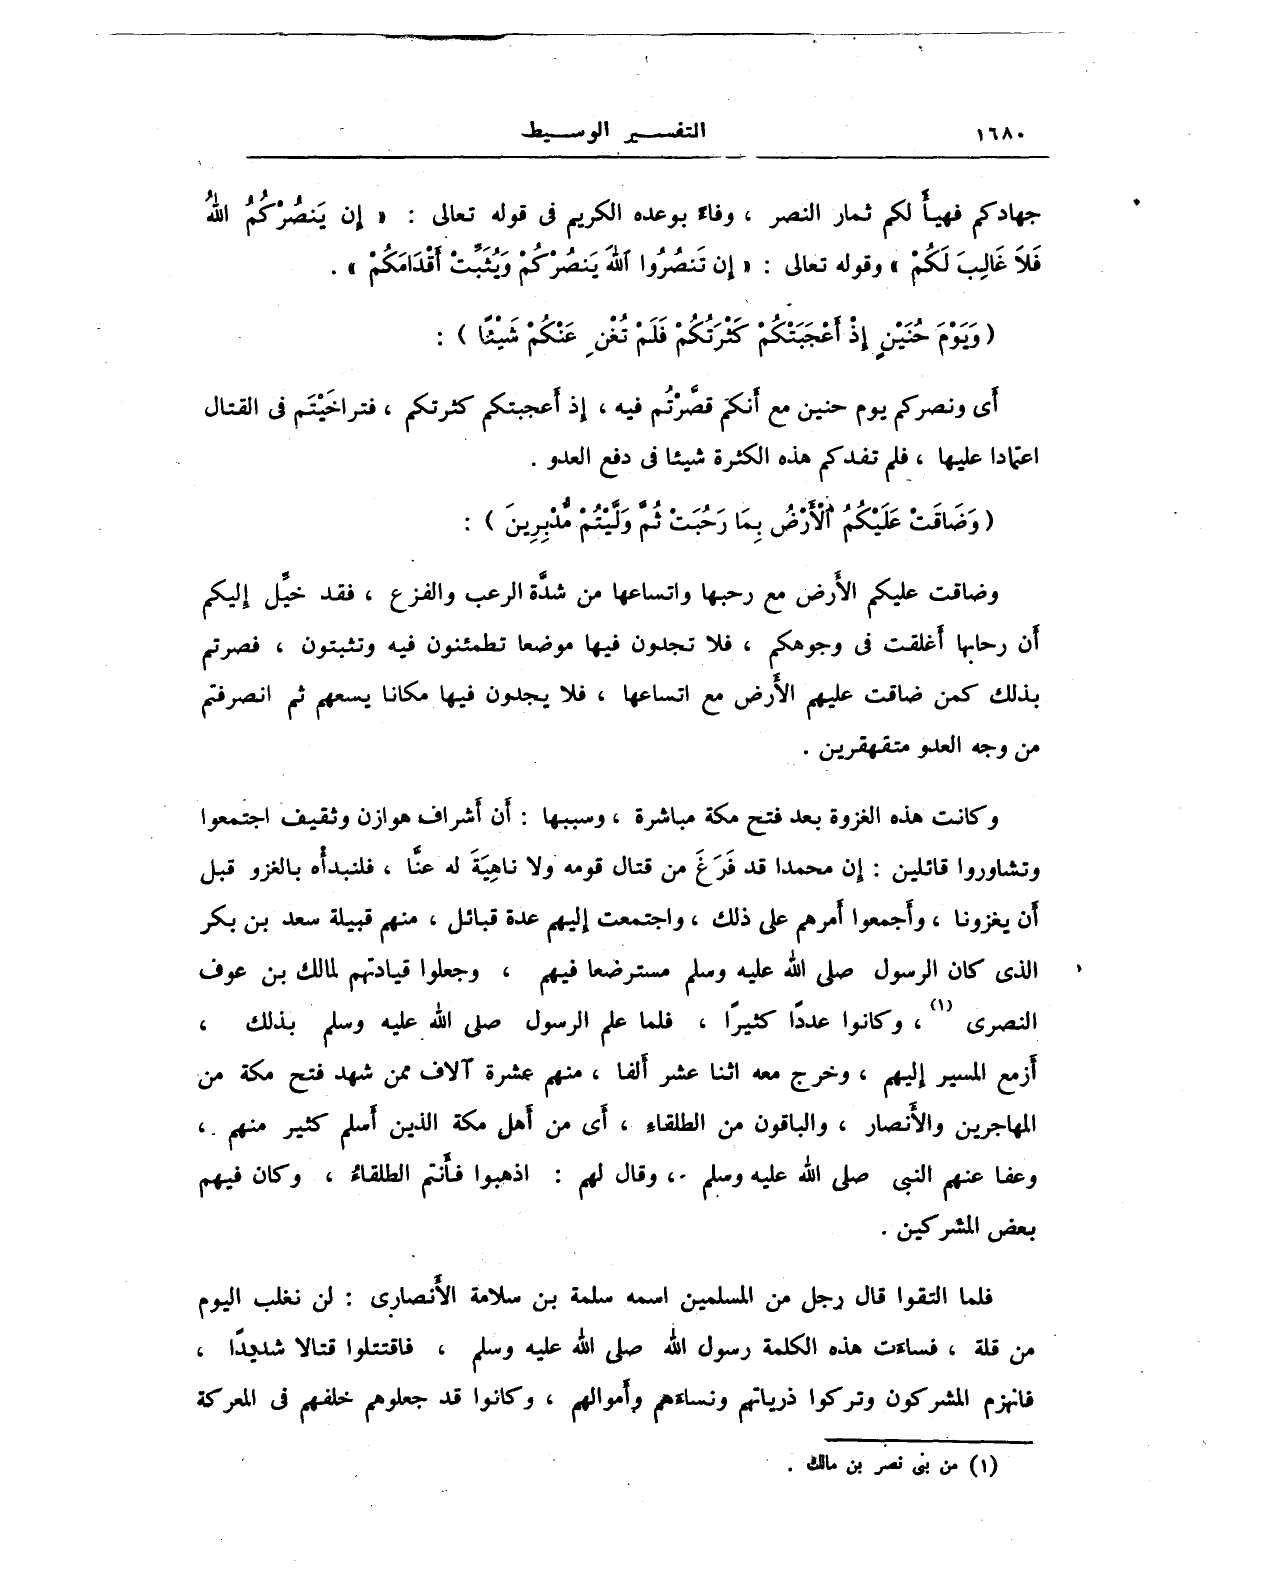 ١٦٨٠ التفسير الوسيط
جهادكم فهيأ لكم ثمار النصر ، وفاءً بوعده الكريم فى قوله تعالى : « إِن يَنصُرْكُمُ اللهُ
فَلَا غَالِبَ لَكُمْ » وقوله تعالى : « إِن تَنصُرُوا اللهَ يَنصُرْكُمْ وَيُثَبِّتْ أَقْدَامَكُمْ » .
( وَيَوْمَ حُنَيْنٍ إِذْ أَعْجَبَتْكُمْ كَثْرَتُكُمْ فَلَمْ تُغْنِ عَنكُمْ شَيْئًا ) :
أى ونصركم يوم حنين مع أنكم قصَّرْتُم فيه ، إذ أعجبتكم كثرتكم ، فتراخَيْتَم فى القتال
اعتمادا عليها ، فلم تفدكم هذه الكثرة شيئا فى دفع العدو .
( وَضَاقَتْ عَلَيْكُمُ الْأَرْضُ بِمَا رَحُبَتْ ثُمَّ وَلَّيْتُمْ مُّدْبِرِينَ ) :
وضاقت عليكم الأَرض مع رحبها واتساعها من شدَّة الرعب والفزع ، فقد خيِّل إليكم
أن رحابها أغلقت فى وجوهكم ، فلا تجدون فيها موضعا تطمئنون فيه وتثبتون ، فصرتم
بذلك كمن ضاقت عليهم الأَرض مع اتساعها ، فلا يجدون فيها مكانا يسعهم ثم انصرفتم
من وجه العدو متقهقرين .
وكانت هذه الغزوة بعد فتح مكة مباشرة ، وسببها : أن أشراف هوازن وثقيف اجتمعوا
وتشاوروا قائلين : إن محمدا قد فَرَغَ من قتال قومه ولا ناهِيَةَ له عنَّا ، فلنبدأه بالغزو قبل
أن يغزونا ، وأجمعوا أمرهم على ذلك ، واجتمعت إليهم عدة قبائل ، منهم قبيلة سعد بن بكر
الذى كان الرسول صلى الله عليه وسلم مسترضعا فيهم ، وجعلوا قيادتهم لمالك بن عوف
النصرى (١) ، وكانوا عددًا كثيرًا ، فلما علم الرسول صلى الله عليه وسلم بذلك ،
أزمع المسير إليهم ، وخرج معه اثنا عشر ألفا ، منهم عشرة آلاف ممن شهد فتح مكة من
المهاجرين والأَنصار ، والباقون من الطلقاء ، أى من أهل مكة الذين أسلم كثير منهم ،
وعفا عنهم النبى صلى الله عليه وسلم ، وقال لهم : اذهبوا فأنتم الطلقاءُ ، وكان فيهم
بعض المشركين .
فلما التقوا قال رجل من المسلمين اسمه سلمة بن سلامة الأَنصارى : لن نغلب اليوم
من قلة ، فساءت هذه الكلمة رسول الله صلى الله عليه وسلم ، فاقتتلوا قتالا شديدًا ،
فانهزم المشركون وتركوا ذرياتهم ونساءهم وأموالهم ، وكانوا قد جعلوهم خلفهم فى المعركة
(١) من بنى نصر بن مالك .